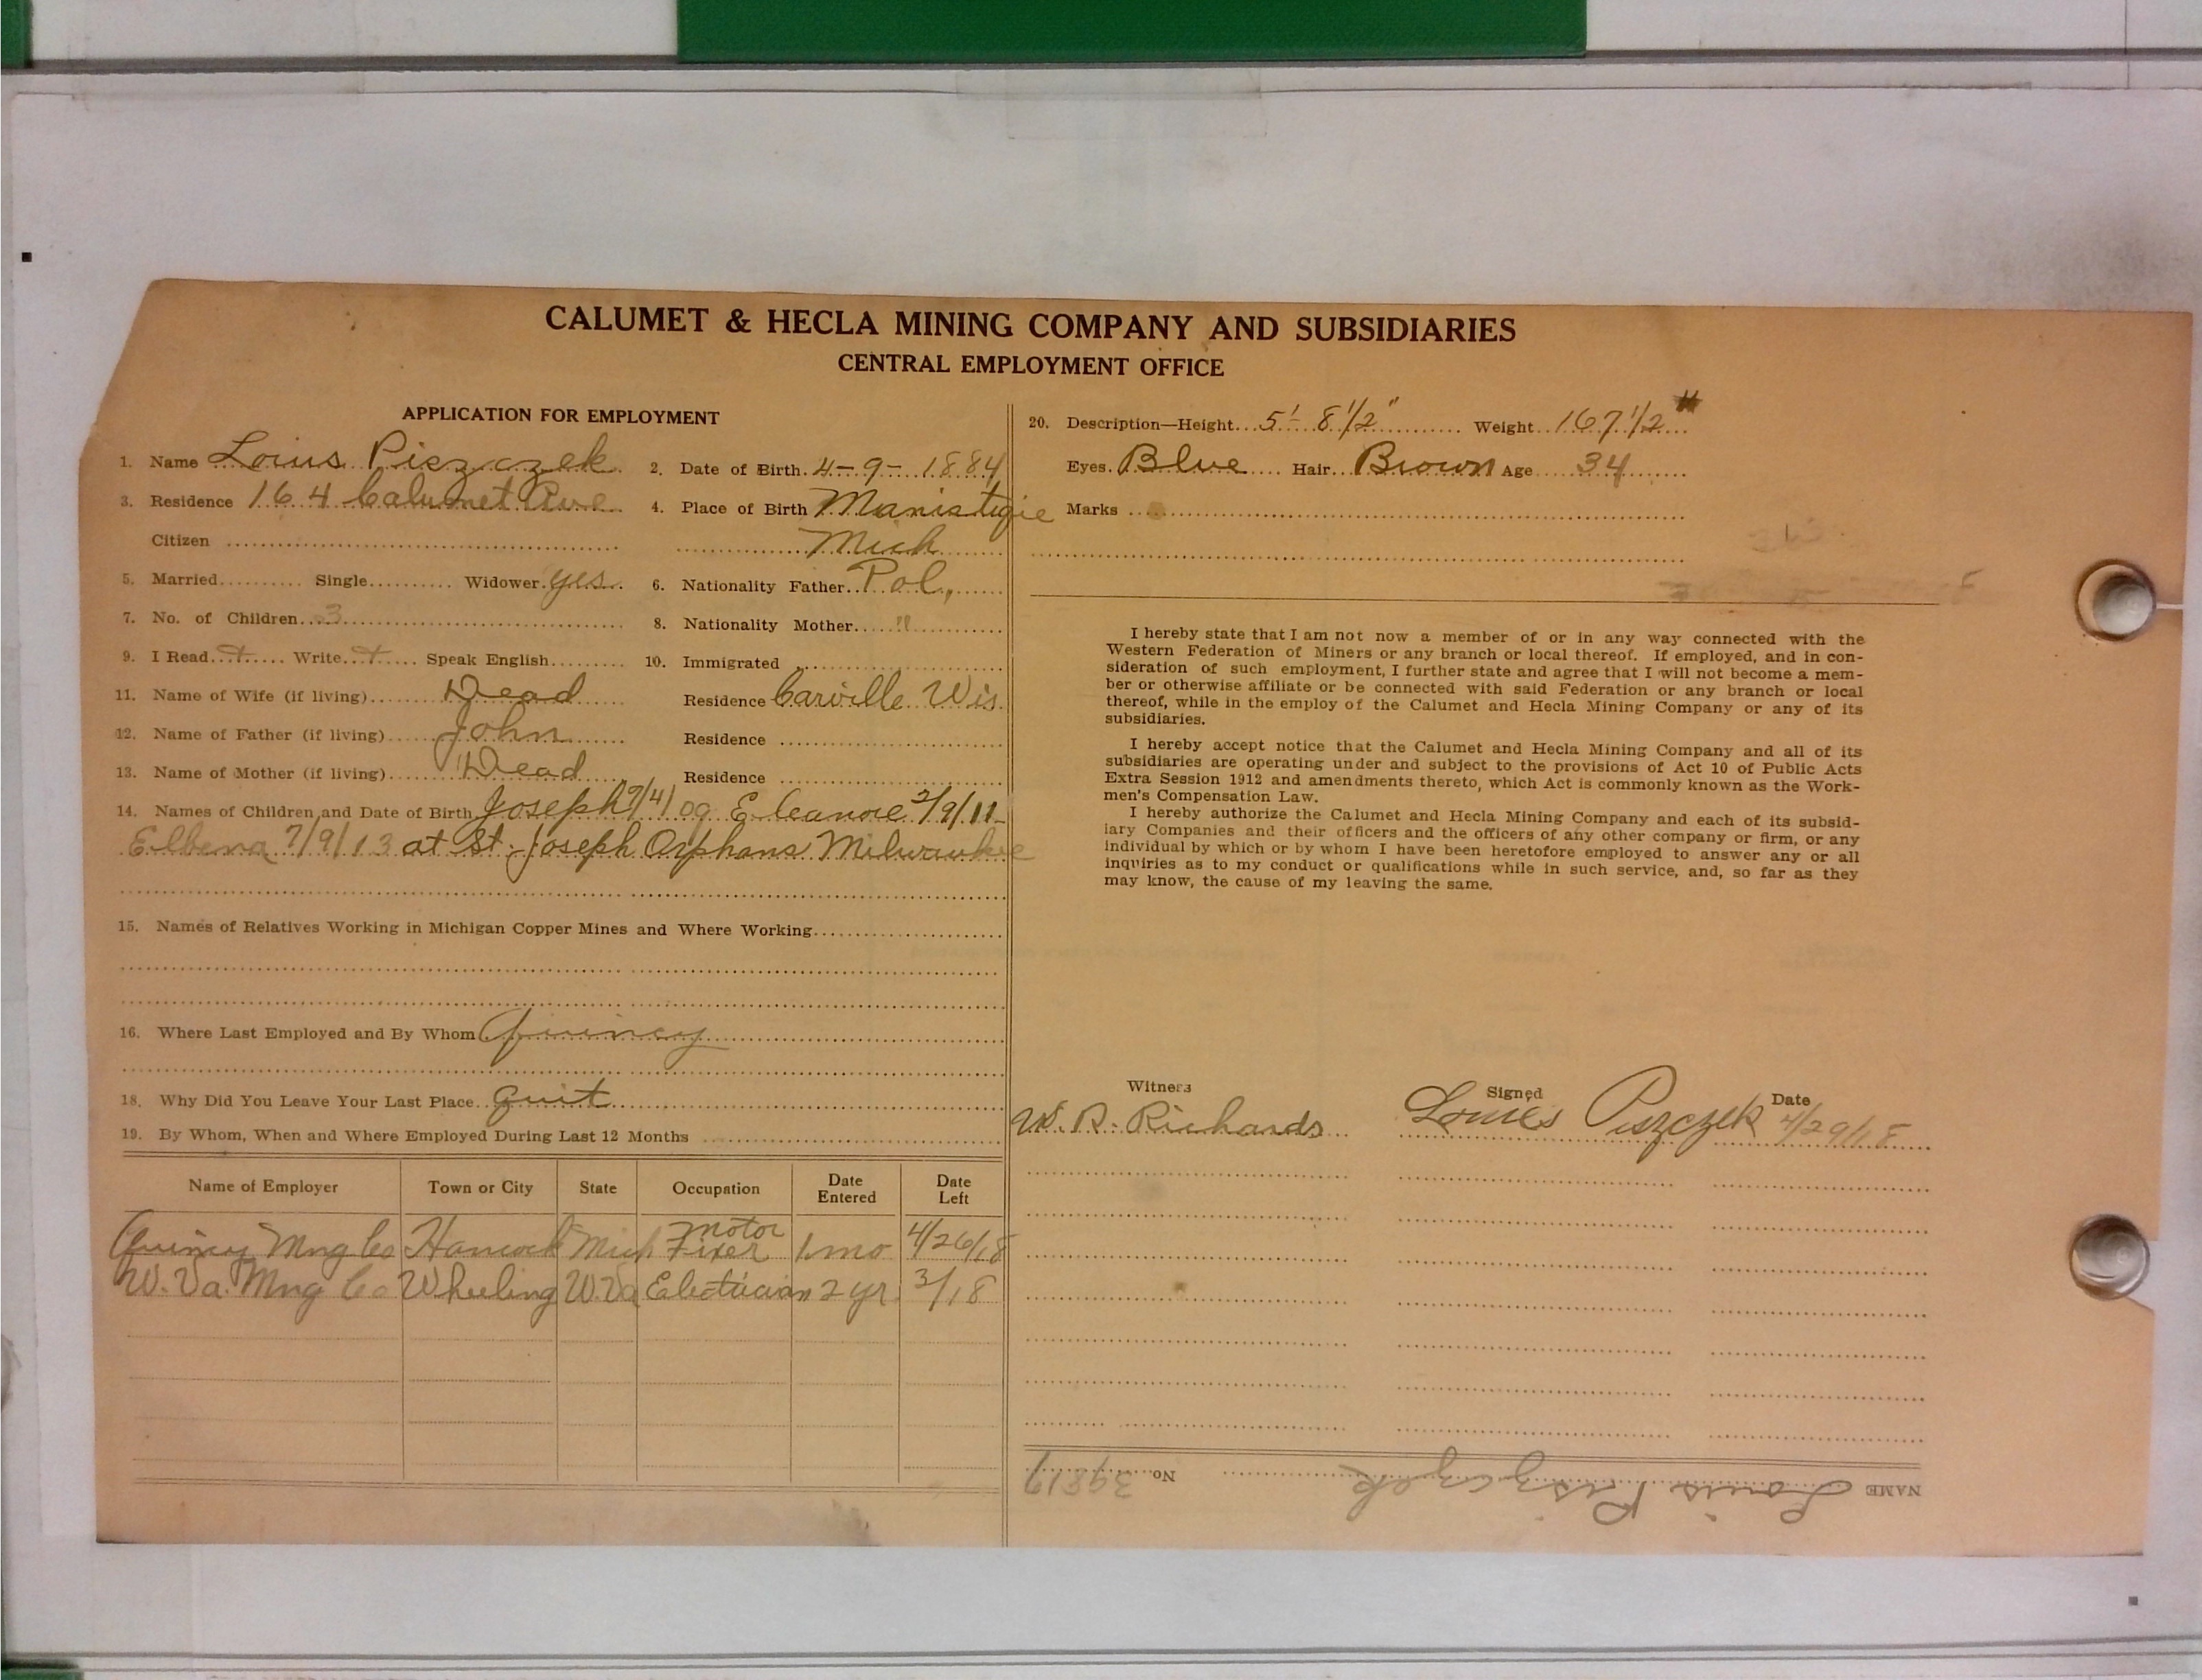 CALUMET & HECLA MINING COMPANY AND SUBSIDIARIES
CENTRAL EMPLOYMENT OFFICE
APPLICATION FOR EMPLOYMENT
1. Name Loius Piszczek 2. Date of Birth 4-9-1884
3. Residence 164 Calumet Ave 4. Place of Birth Manistique
Citizen Mich
5. Married Single Widower yes 6. Nationality Father Pol,
7. No. of Children 3 8. Nationality Mother "
9. I Read + Write + Speak English 10. Immigrated
11. Name of Wife (if living) Dead Residence Carville Wis.
12. Name of Father (if living) John Residence
13. Name of Mother (if living) Dead Residence
14. Names of Children and Date of Birth Joseph 9/4/09 Eleanore 2/9/11
Elbena 7/9/13 at St. Joseph Orphans Milwaukie
15. Names of Relatives Working in Michigan Copper Mines and Where Working
16. Where Last Employed and By Whom Quincy
18. Why Did You Leave Your Last Place quit
19. By Whom, When and Where Employed During Last 12 Months
Name of Employer Town or City State Occupation Date Entered Date Left
Quincy Mng Co Hancock Mich Motor Fixer 1 mo 4/26/18
W. Va. Mng Co Wheeling W.Va Electrician 2 yr 3/18
20. Description—Height 5'- 8 1/2" Weight 167 1/2 #
Eyes Blue Hair Brown Age 34
Marks
I hereby state that I am not now a member of or in any way connected with the
Western Federation of Miners or any branch or local thereof. If employed, and in con-
sideration of such employment, I further state and agree that I will not become a mem-
ber or otherwise affiliate or be connected with said Federation or any branch or local
thereof, while in the employ of the Calumet and Hecla Mining Company or any of its
subsidiaries.
I hereby accept notice that the Calumet and Hecla Mining Company and all of its
subsidiaries are operating under and subject to the provisions of Act 10 of Public Acts
Extra Session 1912 and amendments thereto, which Act is commonly known as the Work-
men's Compensation Law.
I hereby authorize the Calumet and Hecla Mining Company and each of its subsid-
iary Companies and their officers and the officers of any other company or firm, or any
individual by which or by whom I have been heretofore employed to answer any or all
inquiries as to my conduct or qualifications while in such service, and, so far as they
may know, the cause of my leaving the same.
Witness Signed Date
W. R. Richards Louies Piszczek 4/29/18
NAME Louis Piszczek No. 39819